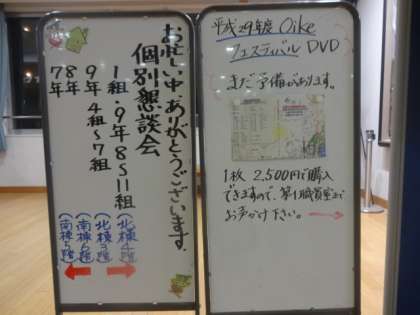 お忙しい中、ありがとうございます。
個別懇談会
1組・9年8~11組(北棟4階)
9年4~7組(北棟3階)
8年(南棟6階)
7年(南棟5階)
平成29年度 Oike
フェスティバル DVD
まだ予備があります。
1枚 2,500円で購入
できますので、第1職員室まで
お声がけ下さい。